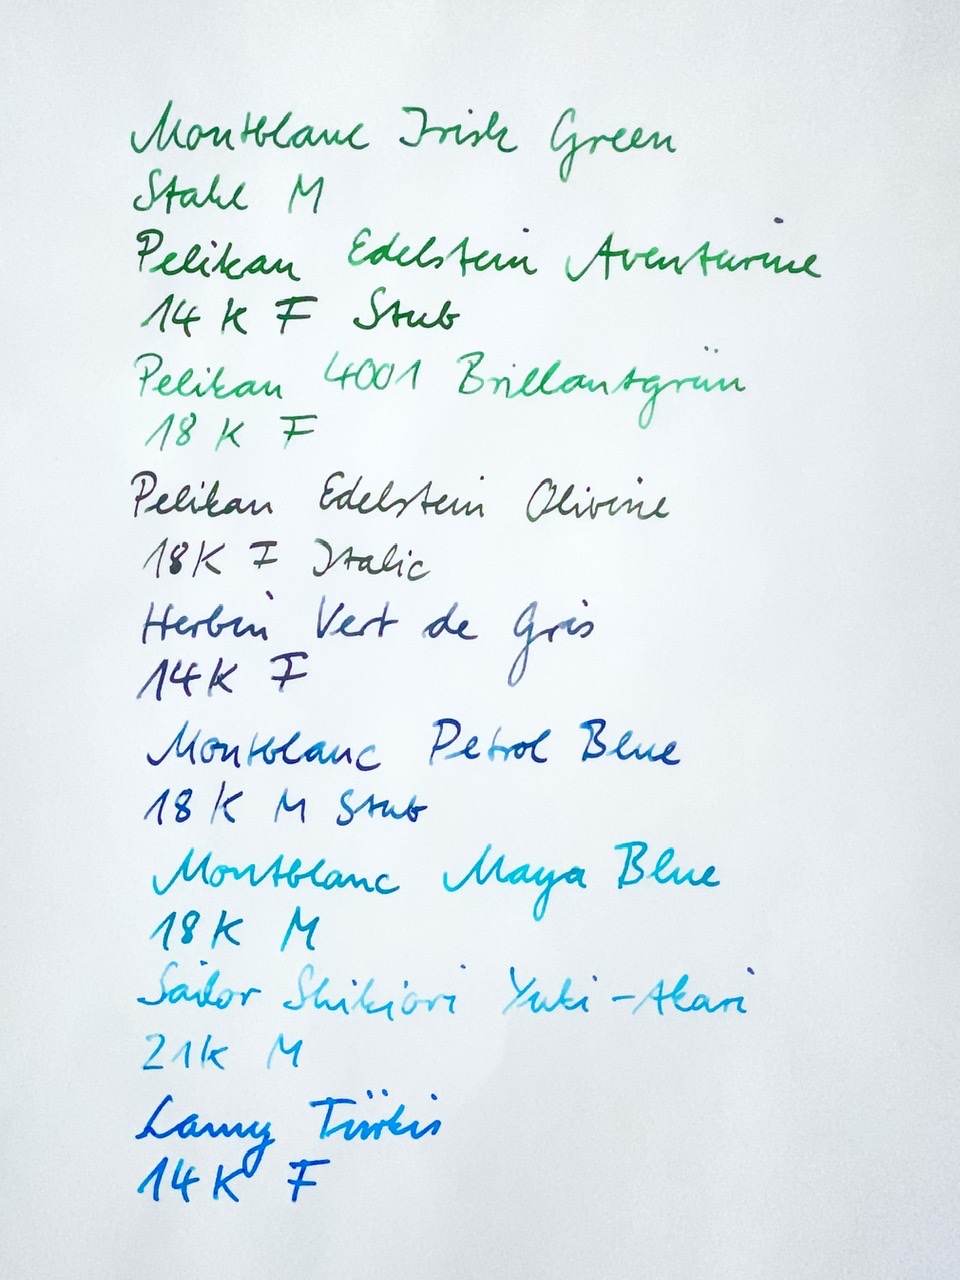 Montblanc Irish Green
Stahl M
Pelikan Edelstein Aventurine
14 K F Stub
Pelikan 4001 Brillantgrün
18 K F
Pelikan Edelstein Olivine
18K F Italic
Herbin Vert de Gris
14K F
Montblanc Petrol Blue
18 K M Stub
Montblanc Maya Blue
18K M
Sailor Shikiori Yuki-Akari
21k M
Lamy Türkis
14K F